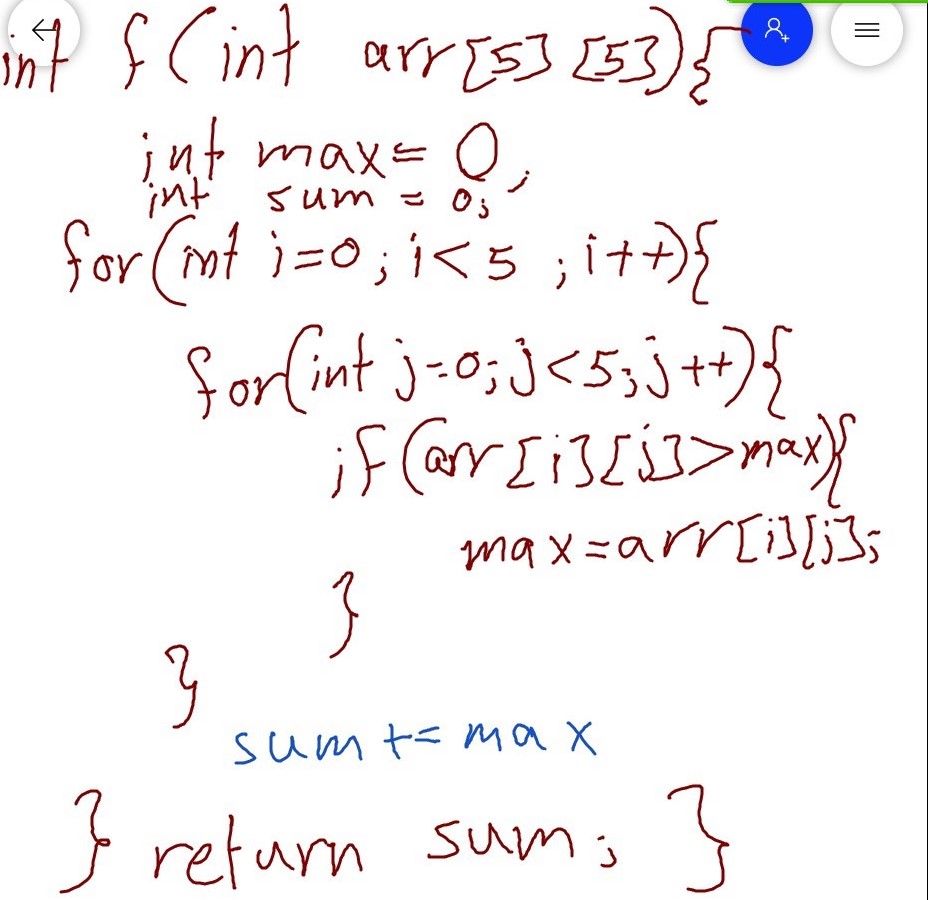 int f(int arr[5][5]){
int max= 0;
int sum = 0;
for(int i=0; i<5 ; i++){
for(int j=0; j<5; j++){
if(arr[i][j]>max){
max=arr[i][j];
}
}
sum += max
} return sum; }